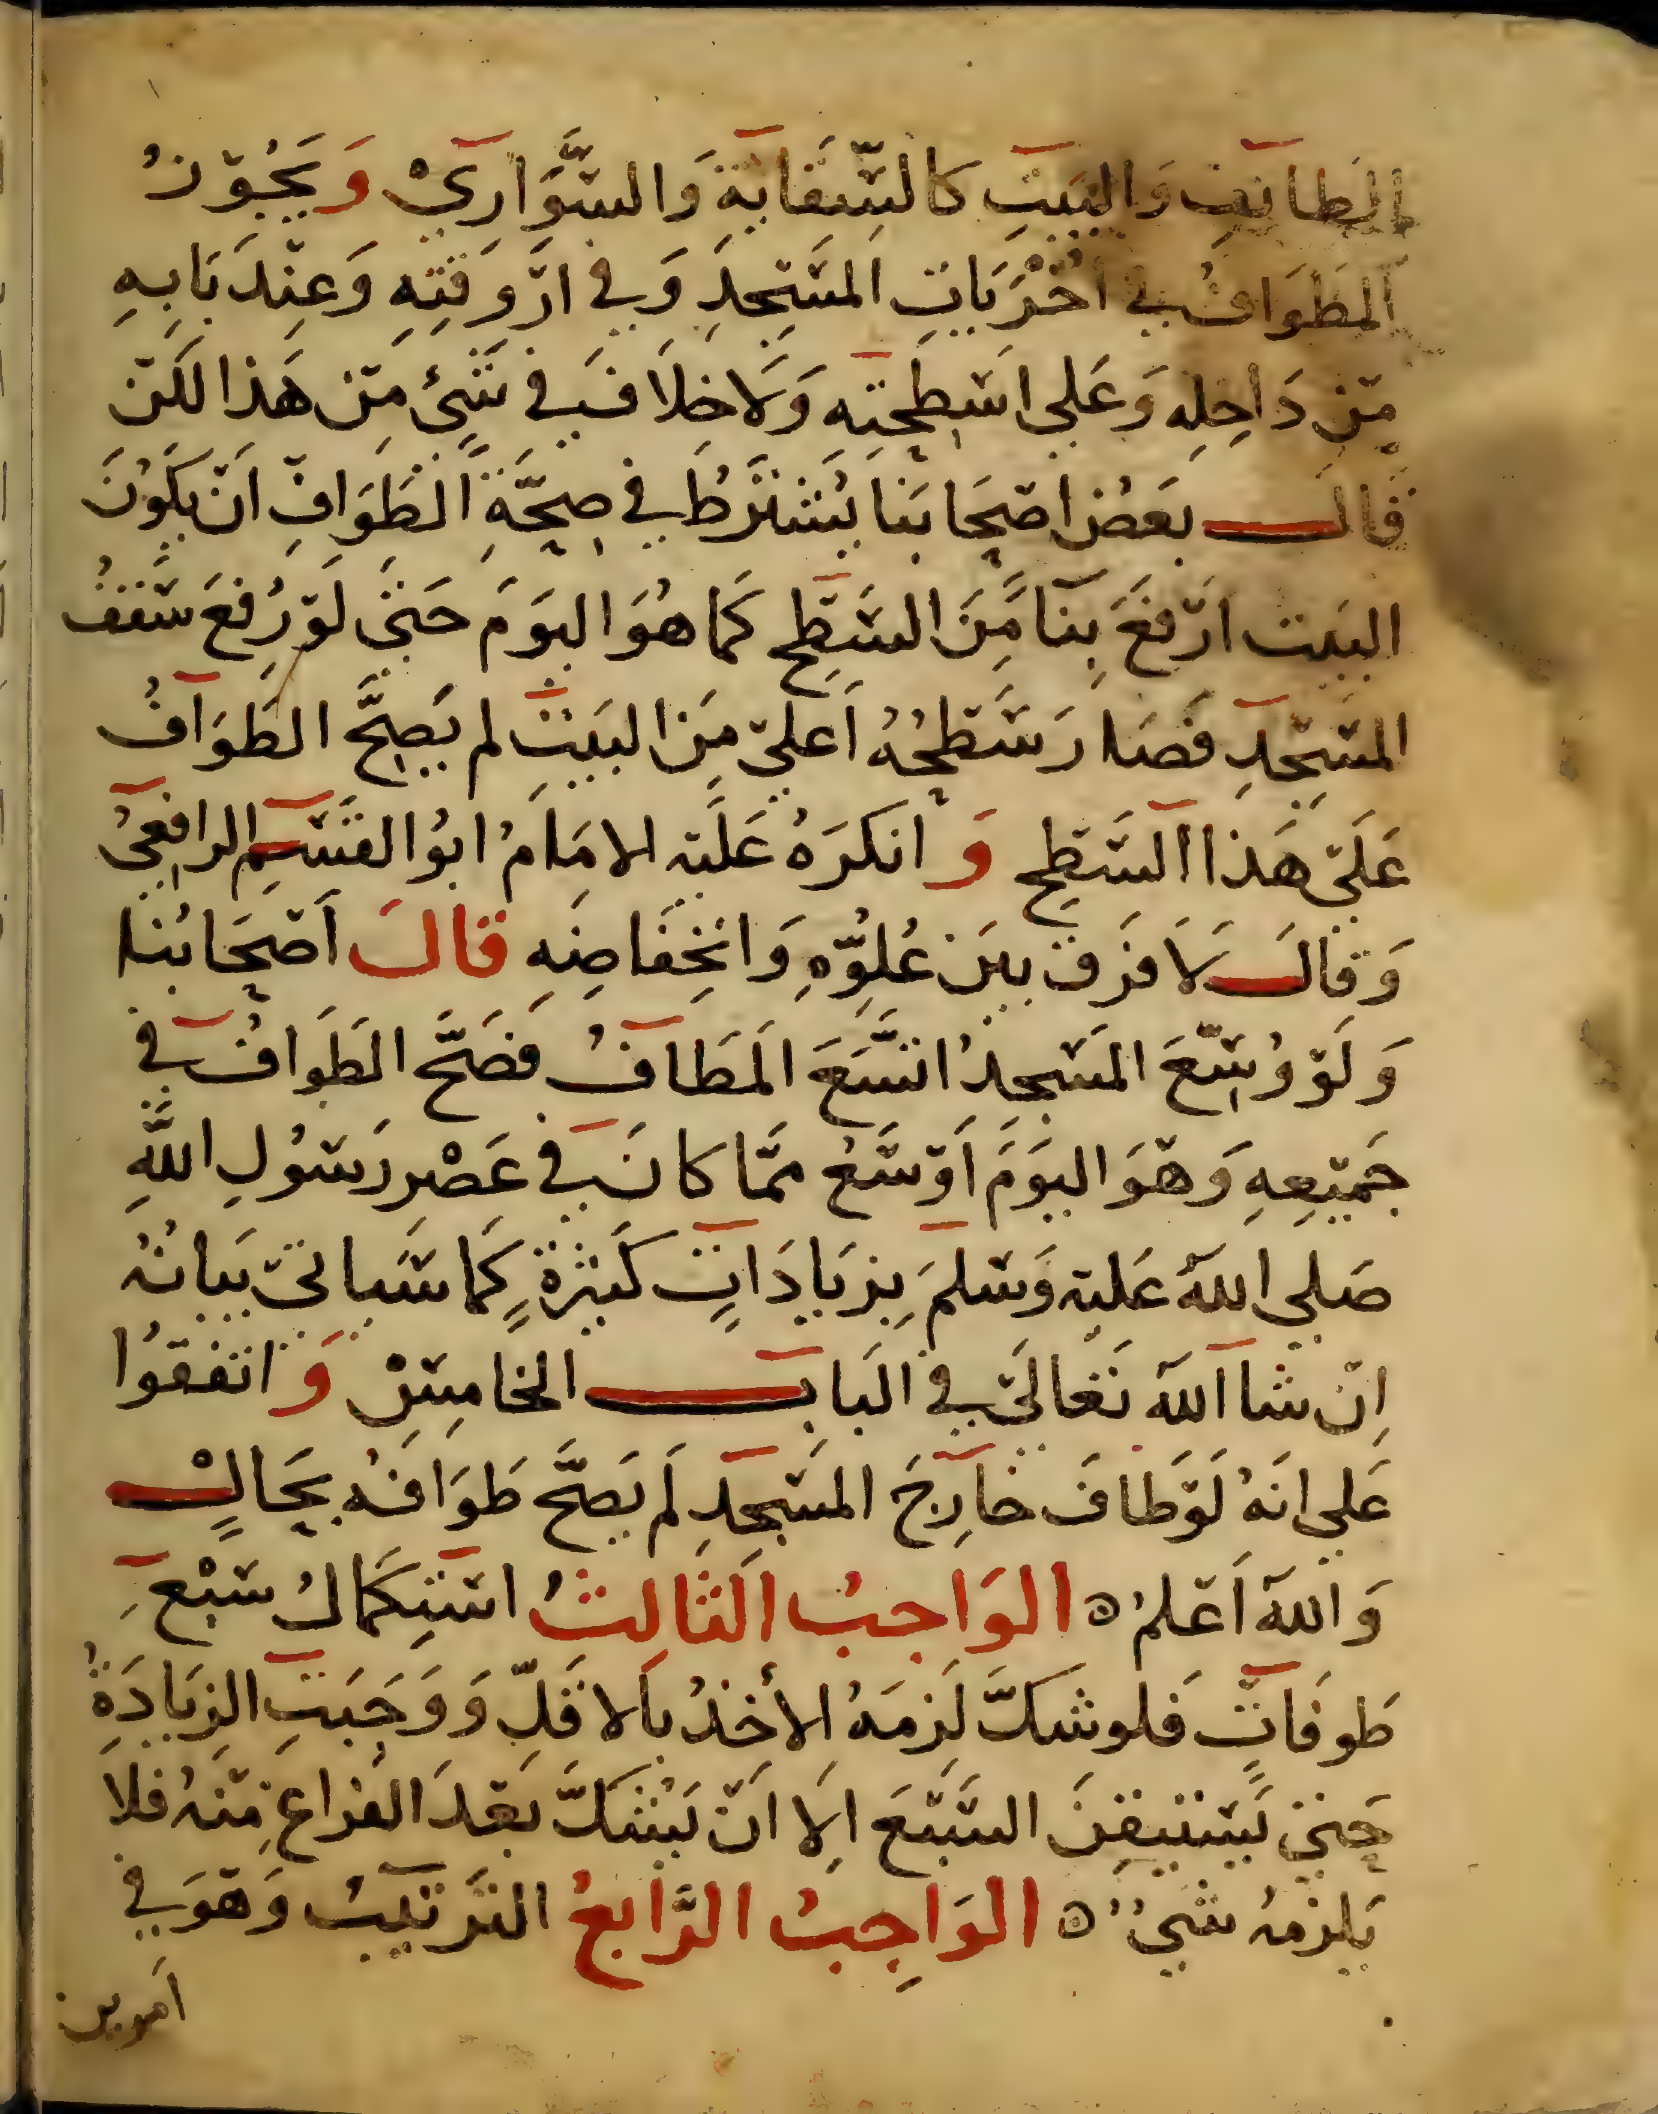 الطائف والبيت كالسقاية والسواري ويجوز
الطواف في اخريات المسجد وفي اروقته وعند بابه
من داخله وعلى اسطحته ولا خلاف في شيء من هذا لكن
قال بعض اصحابنا يشترط في صحة الطواف ان يكون
البيت ارفع بنا من السطح كما هو اليوم حتى لو رفع سقف
المسجد فصار سطحه اعلى من البيت لم يصح الطواف
على هذا السطح وانكره عليه الامام ابو القسم الرافعي
وقال لا فرق بين علوه وانخفاضه قال اصحابنا
ولو وسع المسجد اتسع المطاف فصح الطواف في
جميعه وهو اليوم اوسع مما كان في عصر رسول الله
صلى الله عليه وسلم بزيادات كثيرة كما سياتي بيانه
ان شا الله تعالى في الباب الخامس واتفقوا
على انه لو طاف خارج المسجد لم يصح طوافه بحال
والله اعلم ه الواجب الثالث استكمال سبع
طوفات فلو شك لزمه الأخذ بالاقل ووجبت الزيادة
حتى يستيقن السبع الا ان يشك بعد الفراغ منه فلا
يلزمه شيء ه الواجب الرابع الترتيب وهو في
امرين